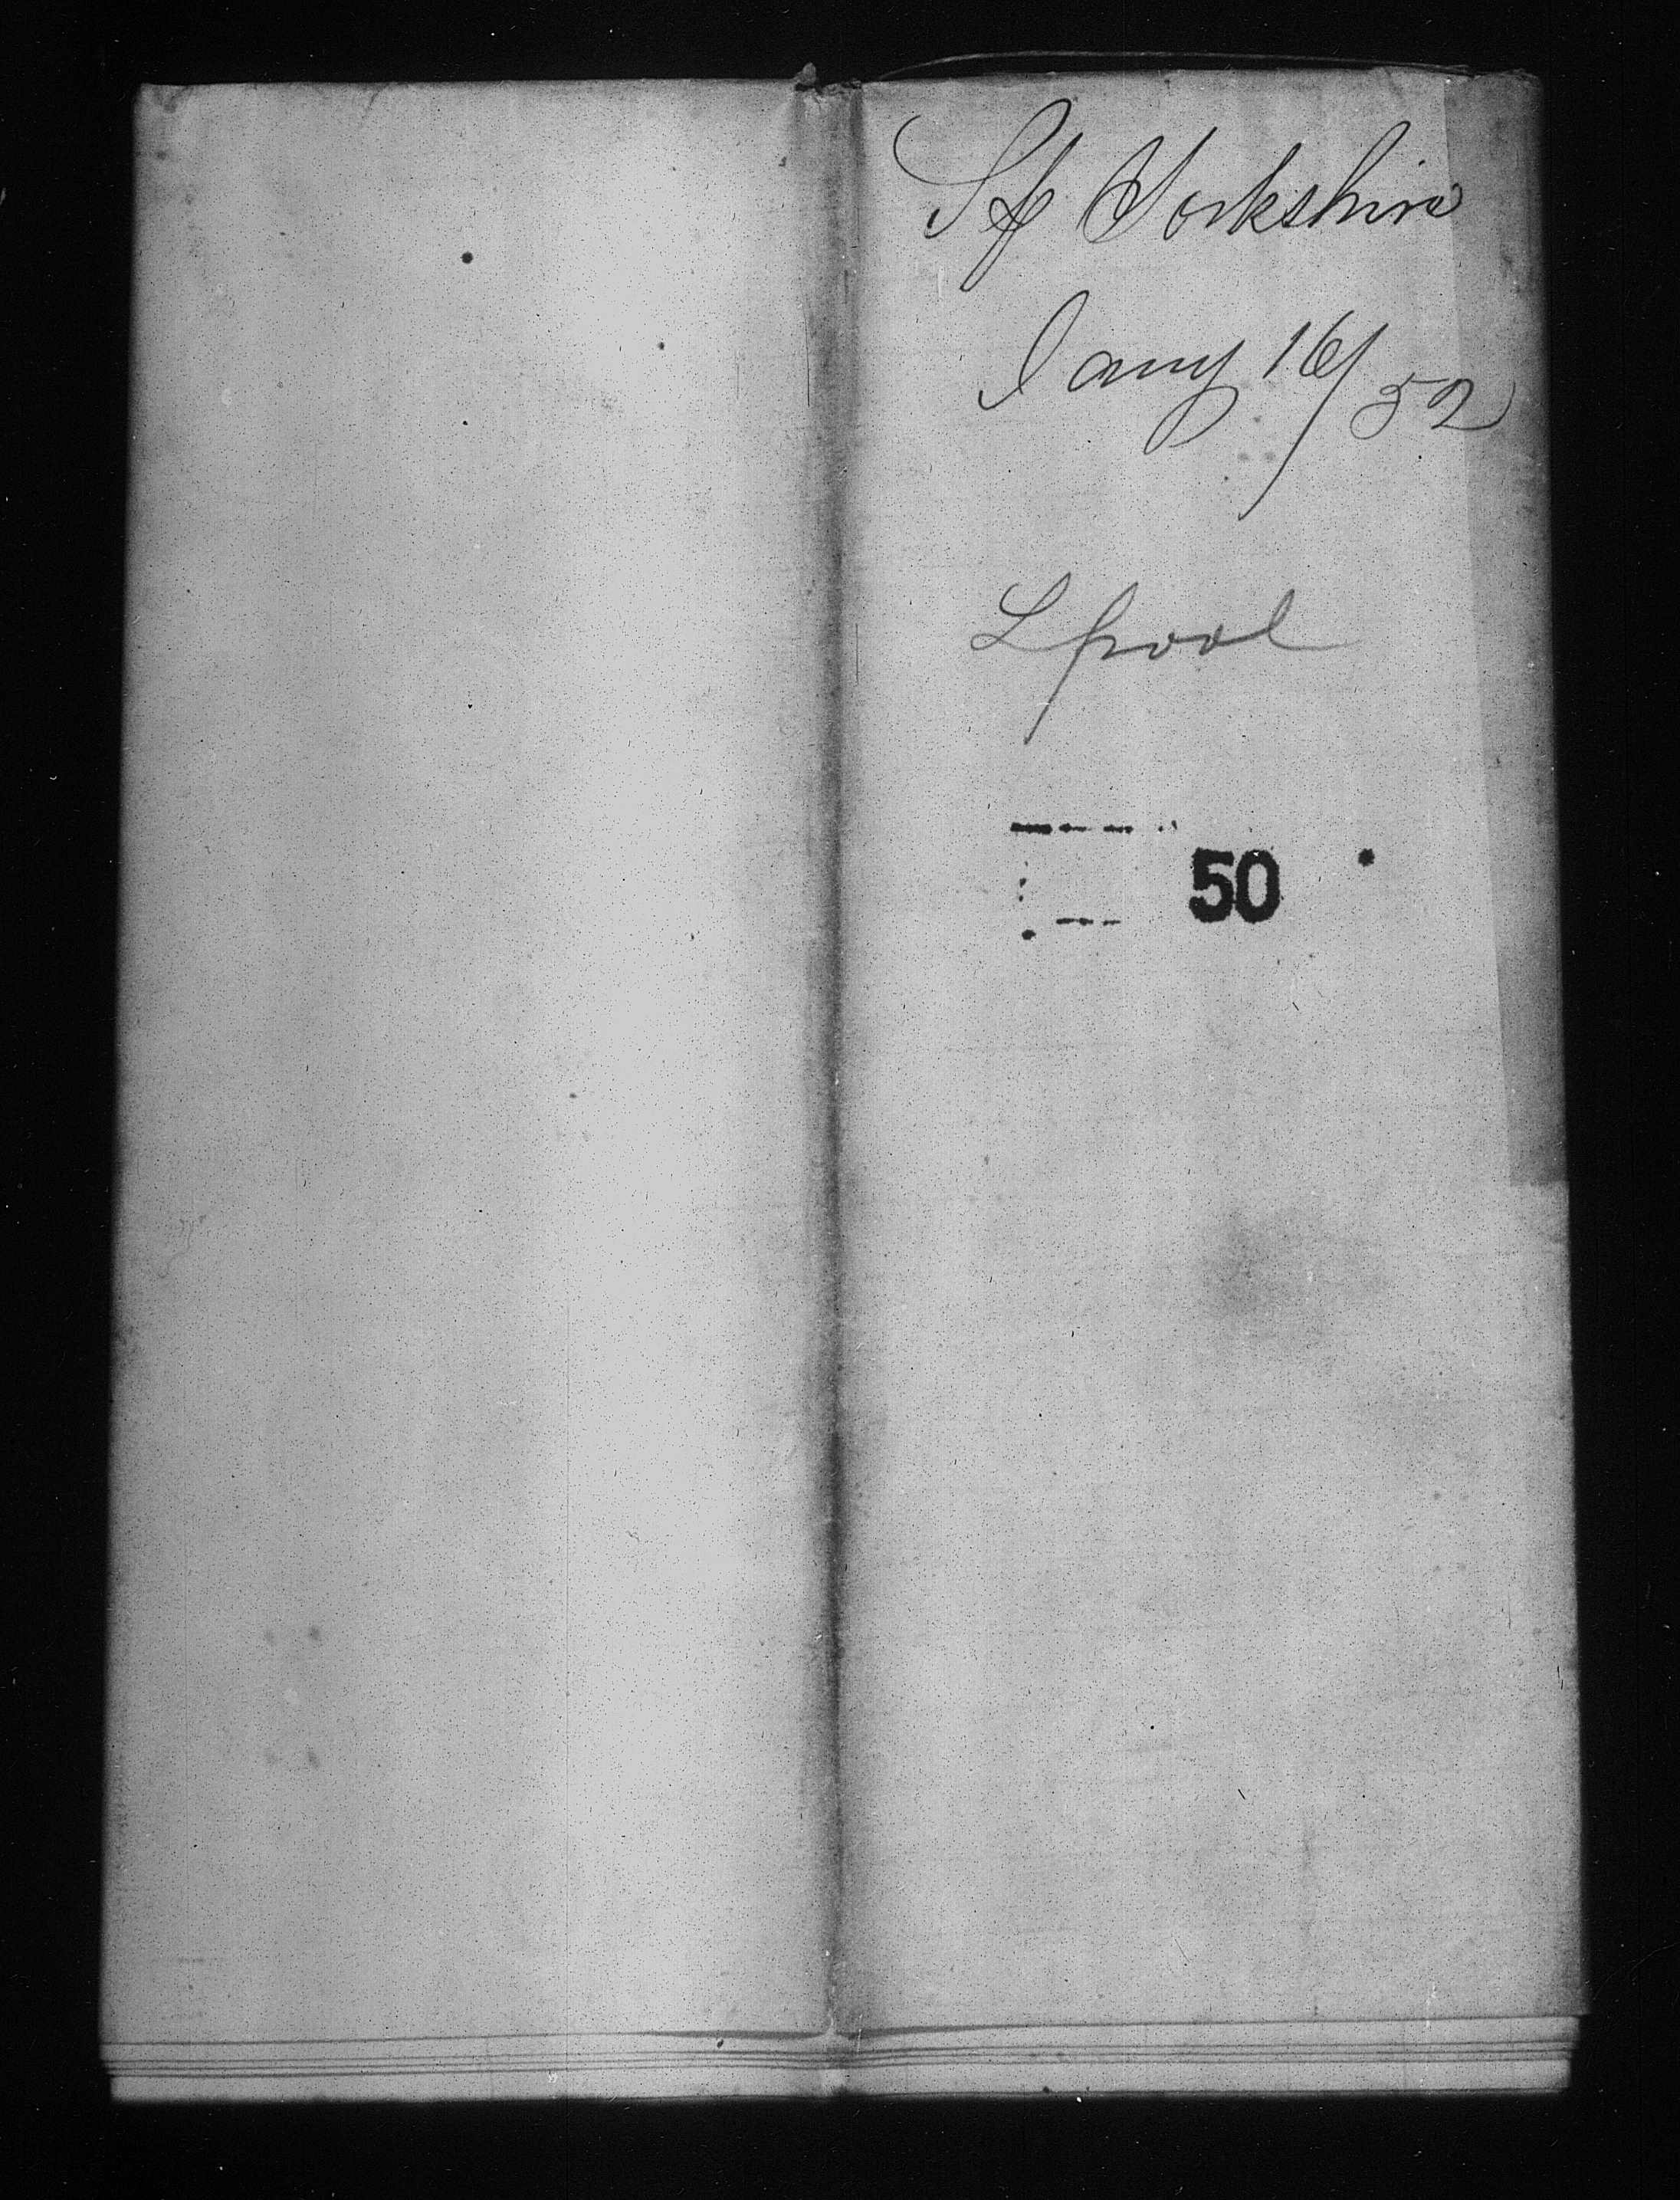 Sp Yorkshire
Jany 16/52
Lpool
50